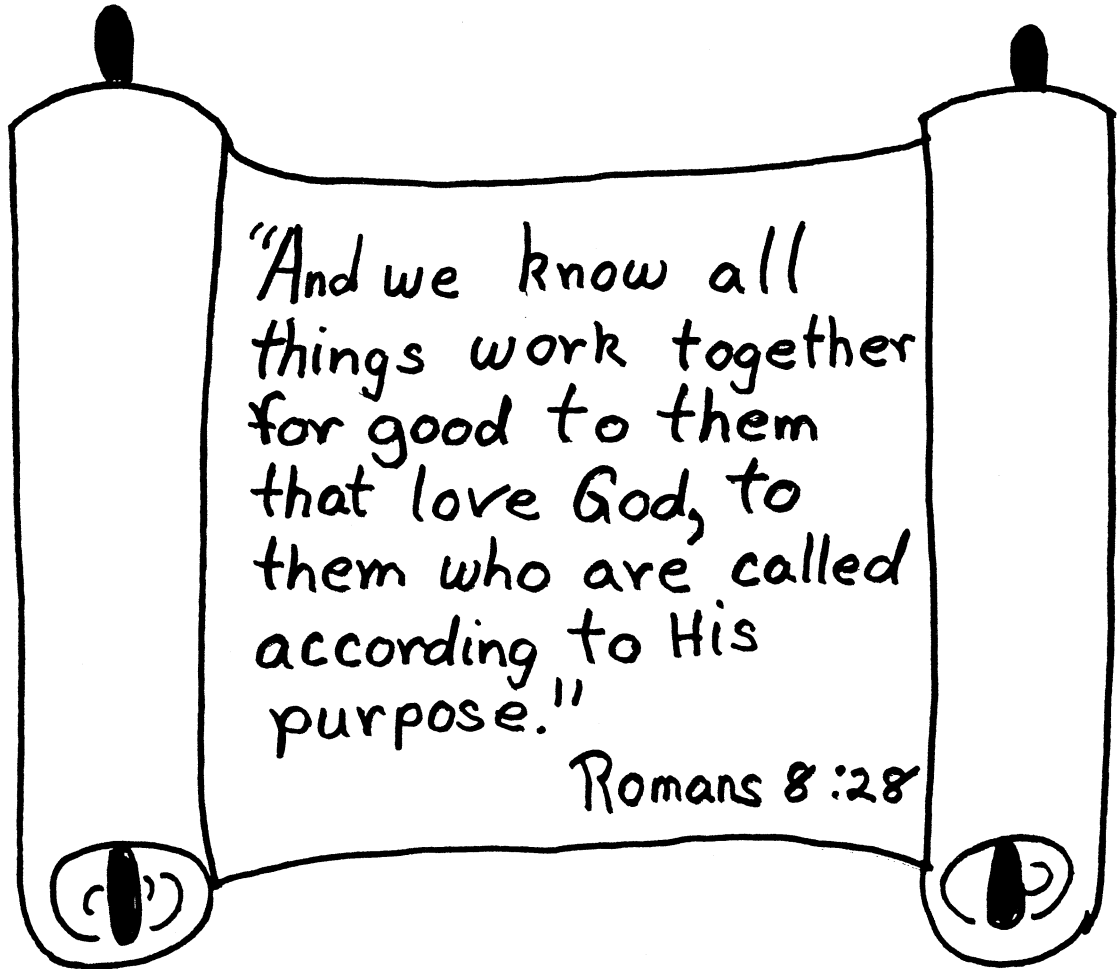 “And we know all
things work together
for good to them
that love God, to
them who are called
according to His
purpose."
Romans 8:28